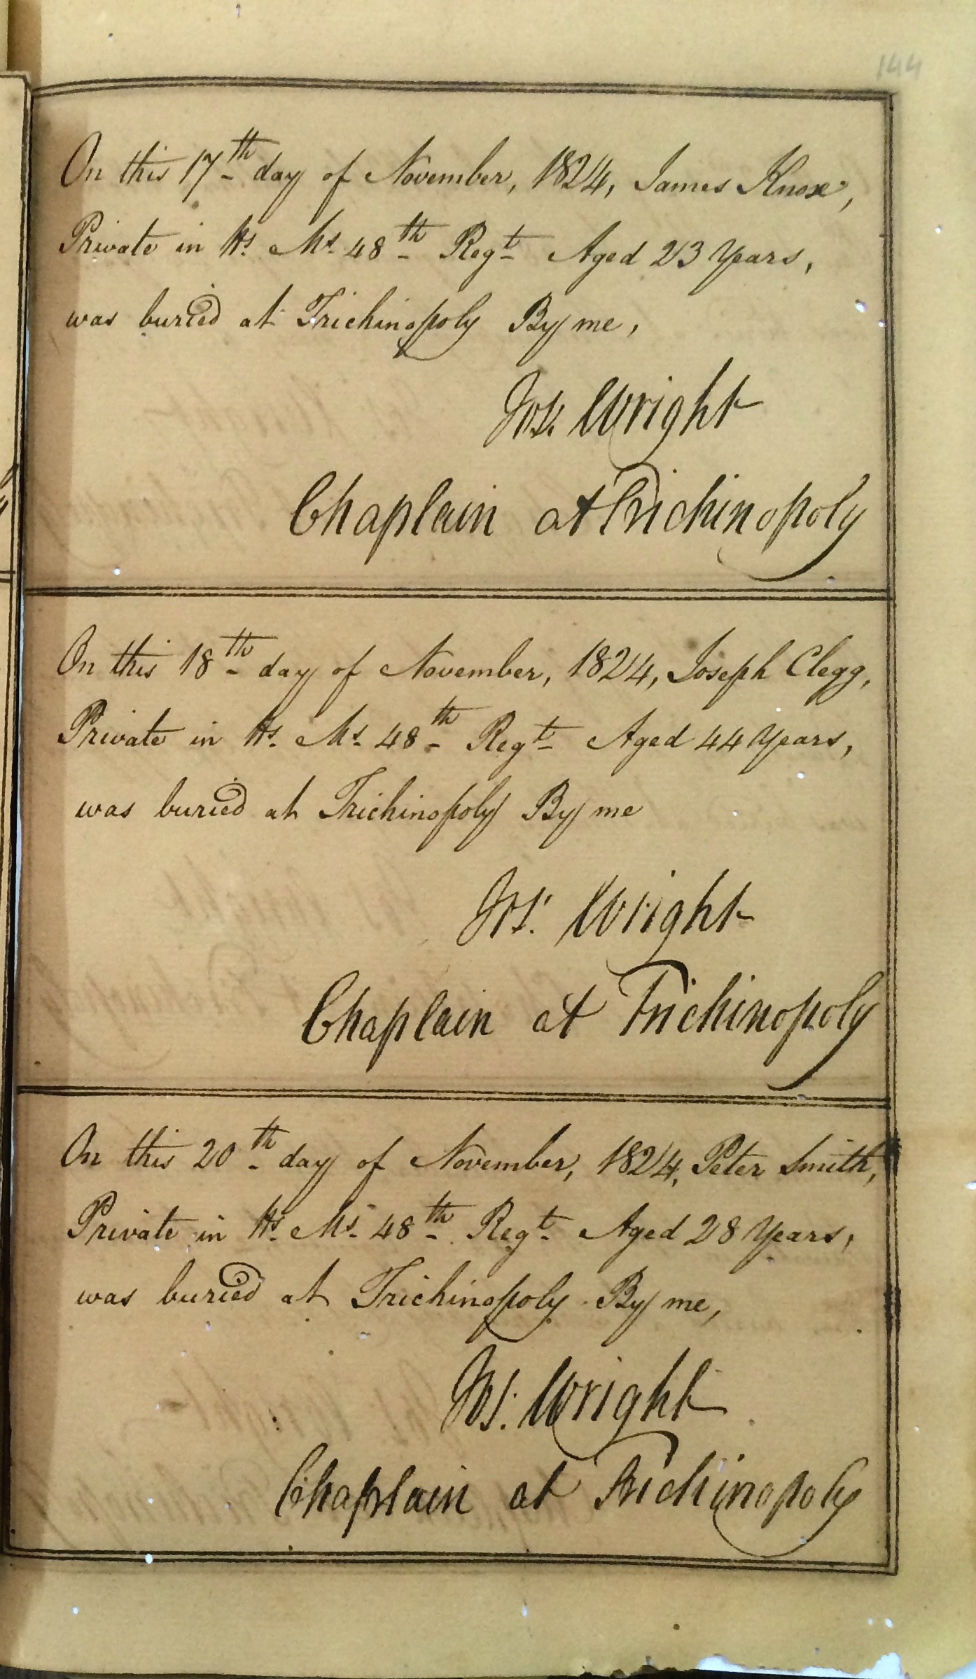 144
On this 17th day of November, 1824, James Knox,
Private in Hs. Ms. 48th Regt. Aged 23 Years,
was buried at Trichinopoly By me,
Jos. Wright
Chaplain at Trichinopoly
On this 18th day of November, 1824, Joseph Clegg,
Private in Hs. Ms. 48th Regt. Aged 44 Years,
was buried at Trichinopoly By me
Jos. Wright
Chaplain at Trichinopoly
On this 20th day of November, 1824, Peter Smith,
Private in Hs. Ms. 48th Regt. Aged 28 Years,
was buried at Trichinopoly By me,
Jos. Wright
Chaplain at Trichinopoly